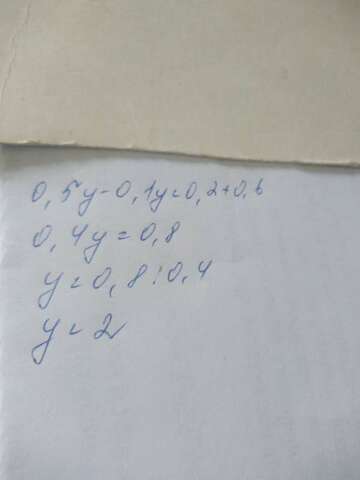 0,5y-0,1y=0,2+0,6
0,4y=0,8
y=0,8:0,4
y=2